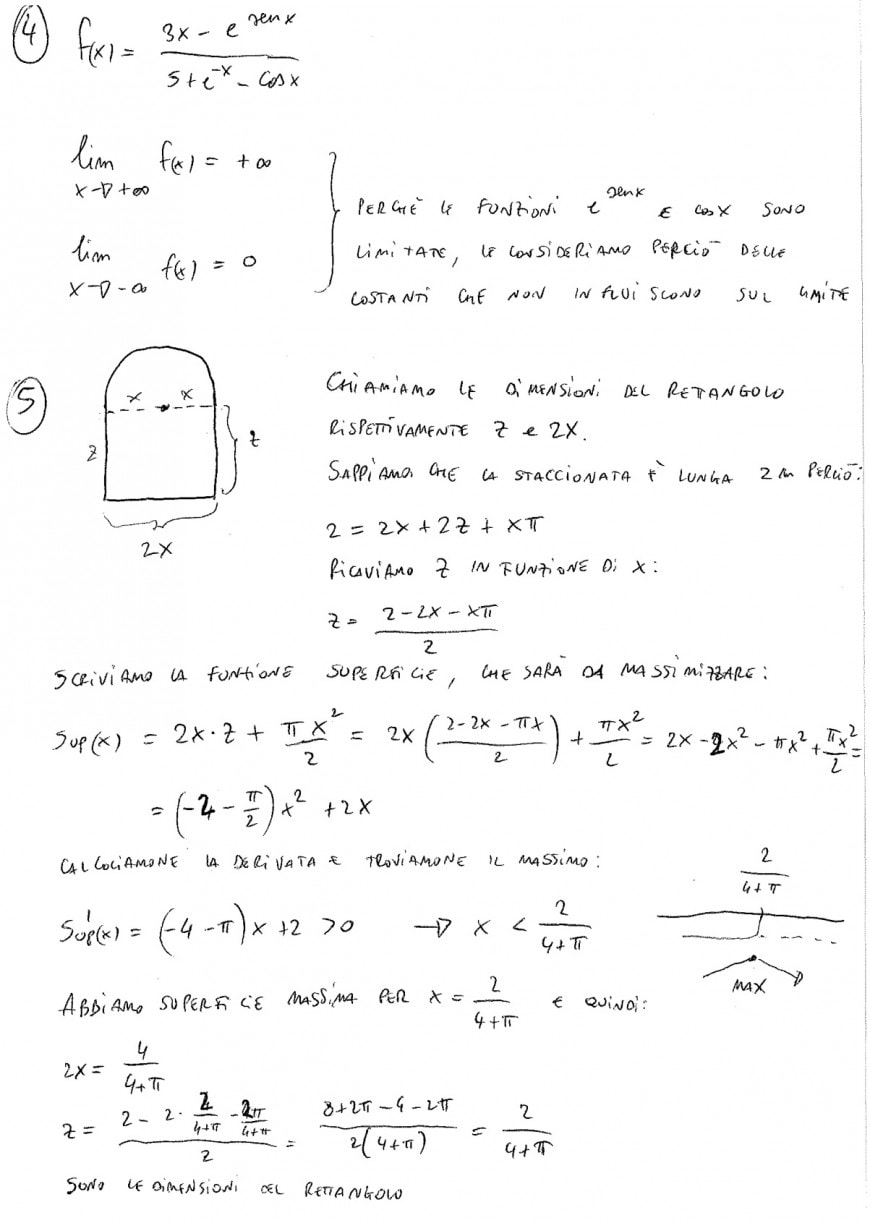 4 f(x) = (3x - e^{sen x}) / (5 + e^{-x} - cos x)
lim x→+∞ f(x) = +∞
lim x→-∞ f(x) = 0
PERCHÈ LE FUNZIONI e^{sen x} E cos x SONO
LIMITATE, LE CONSIDERIAMO PERCIÒ DELLE
COSTANTI CHE NON INFLUISCONO SUL LIMITE
5
x x
z z
2x
CHIAMIAMO LE DIMENSIONI DEL RETTANGOLO
RISPETTIVAMENTE z e 2x.
SAPPIAMO CHE LA STACCIONATA È LUNGA 2 m PERCIÒ:
2 = 2x + 2z + xπ
RICAVIAMO z IN FUNZIONE DI x:
z = (2 - 2x - xπ) / 2
SCRIVIAMO LA FUNZIONE SUPERFICIE, CHE SARÀ DA MASSIMIZZARE:
Sup(x) = 2x·z + πx²/2 = 2x((2 - 2x - πx)/2) + πx²/2 = 2x - 2x² - πx² + πx²/2 =
= (-2 - π/2)x² + 2x
CALCOLIAMONE LA DERIVATA E TROVIAMONE IL MASSIMO:
Sup'(x) = (-4 - π)x + 2 > 0 → x < 2/(4+π)
2/(4+π)
MAX
ABBIAMO SUPERFICIE MASSIMA PER x = 2/(4+π) E QUINDI:
2x = 4/(4+π)
z = (2 - 2·2/(4+π) - 2π/(4+π)) / 2 = (8 + 2π - 4 - 2π) / (2(4+π)) = 2/(4+π)
SONO LE DIMENSIONI DEL RETTANGOLO